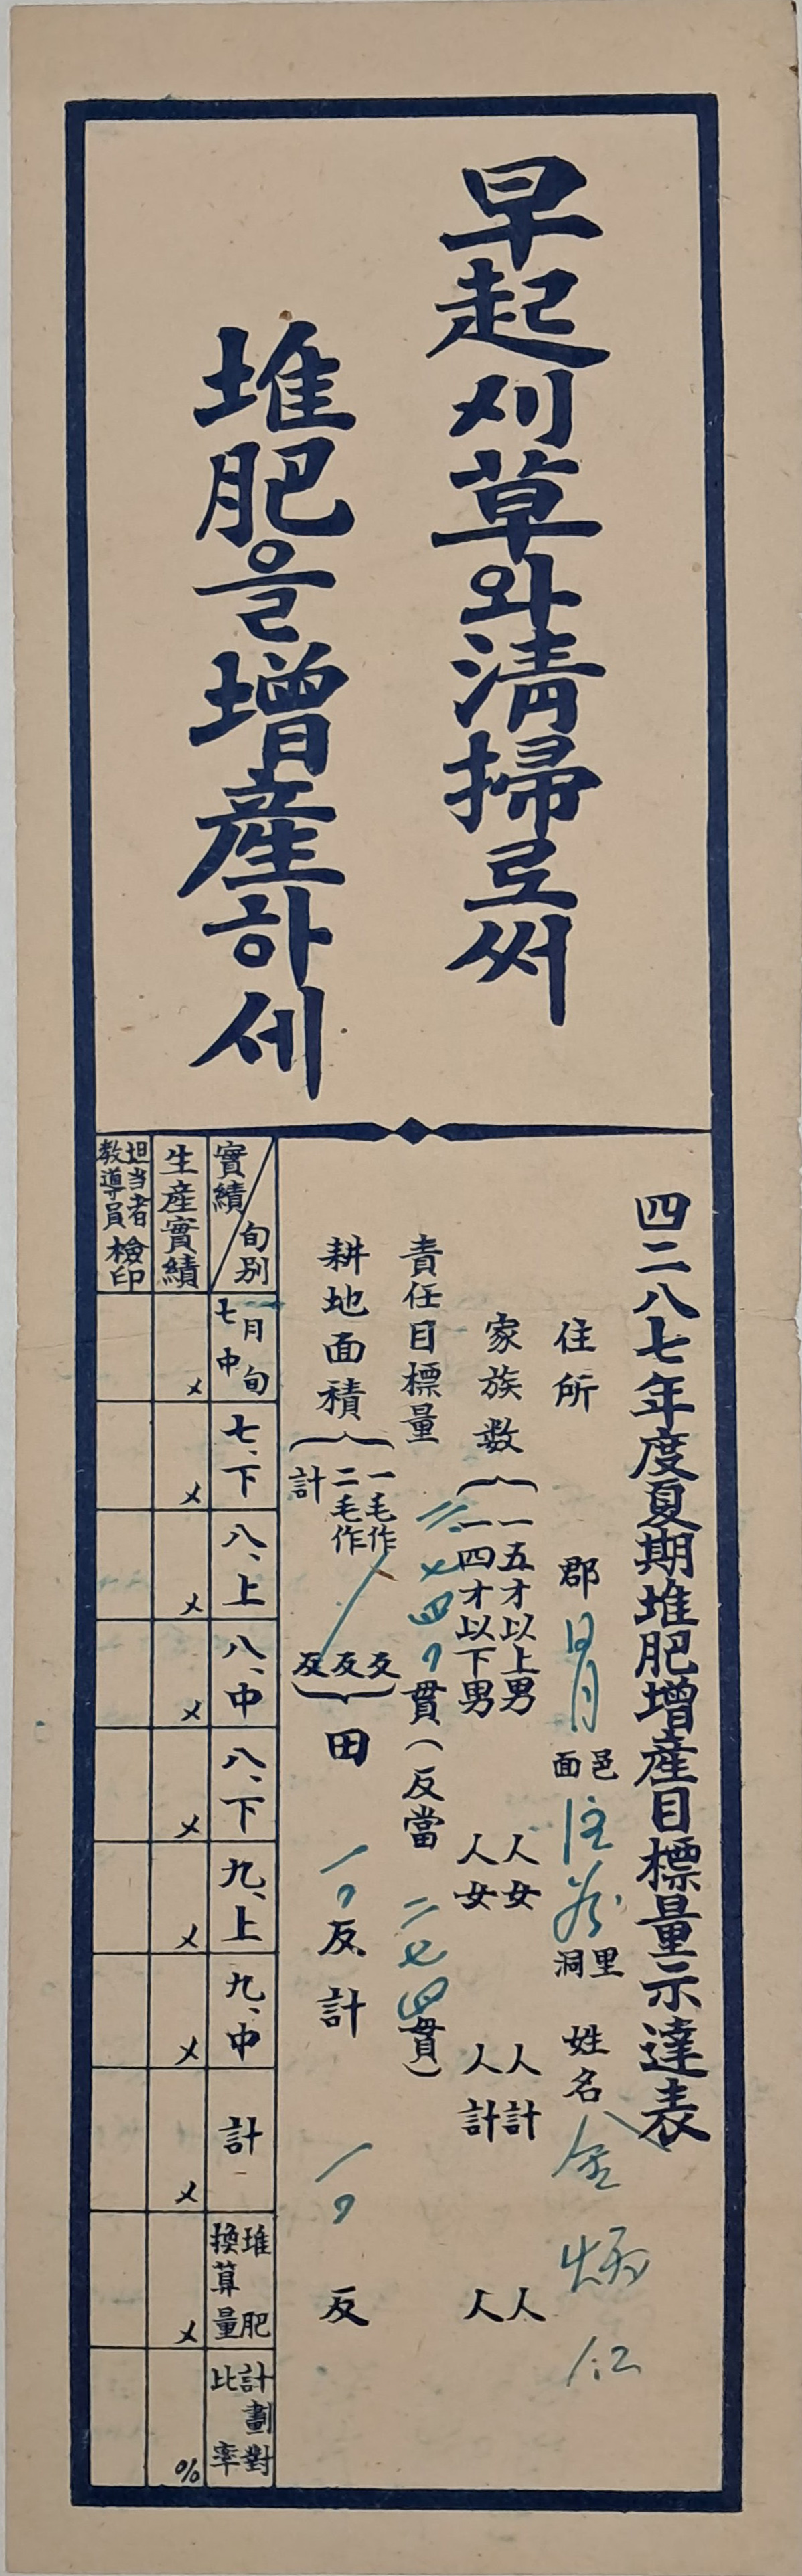 早起刈草와淸掃로써
堆肥을增産하세
四二八七年度夏期堆肥增産目標量示達表
住所 郡 面邑 洞里 姓名 金炳仁
家族数 一五才以上男 人 女 人 計 人
一四才以下男 人 女 人 計 人
責任目標量 二、七四〇貫(反當 二七四貫)
耕地面積 一毛作 反
二毛作 反
計 反 田 一〇反 計 一〇反
實績 旬別 七月中旬 七、下 八、上 八、中 八、下 九、上 九、中 計 堆肥換算量 計劃對比率
生産實績 〆 〆 〆 〆 〆 〆 〆 〆 〆 %
担当者 教導員 檢印